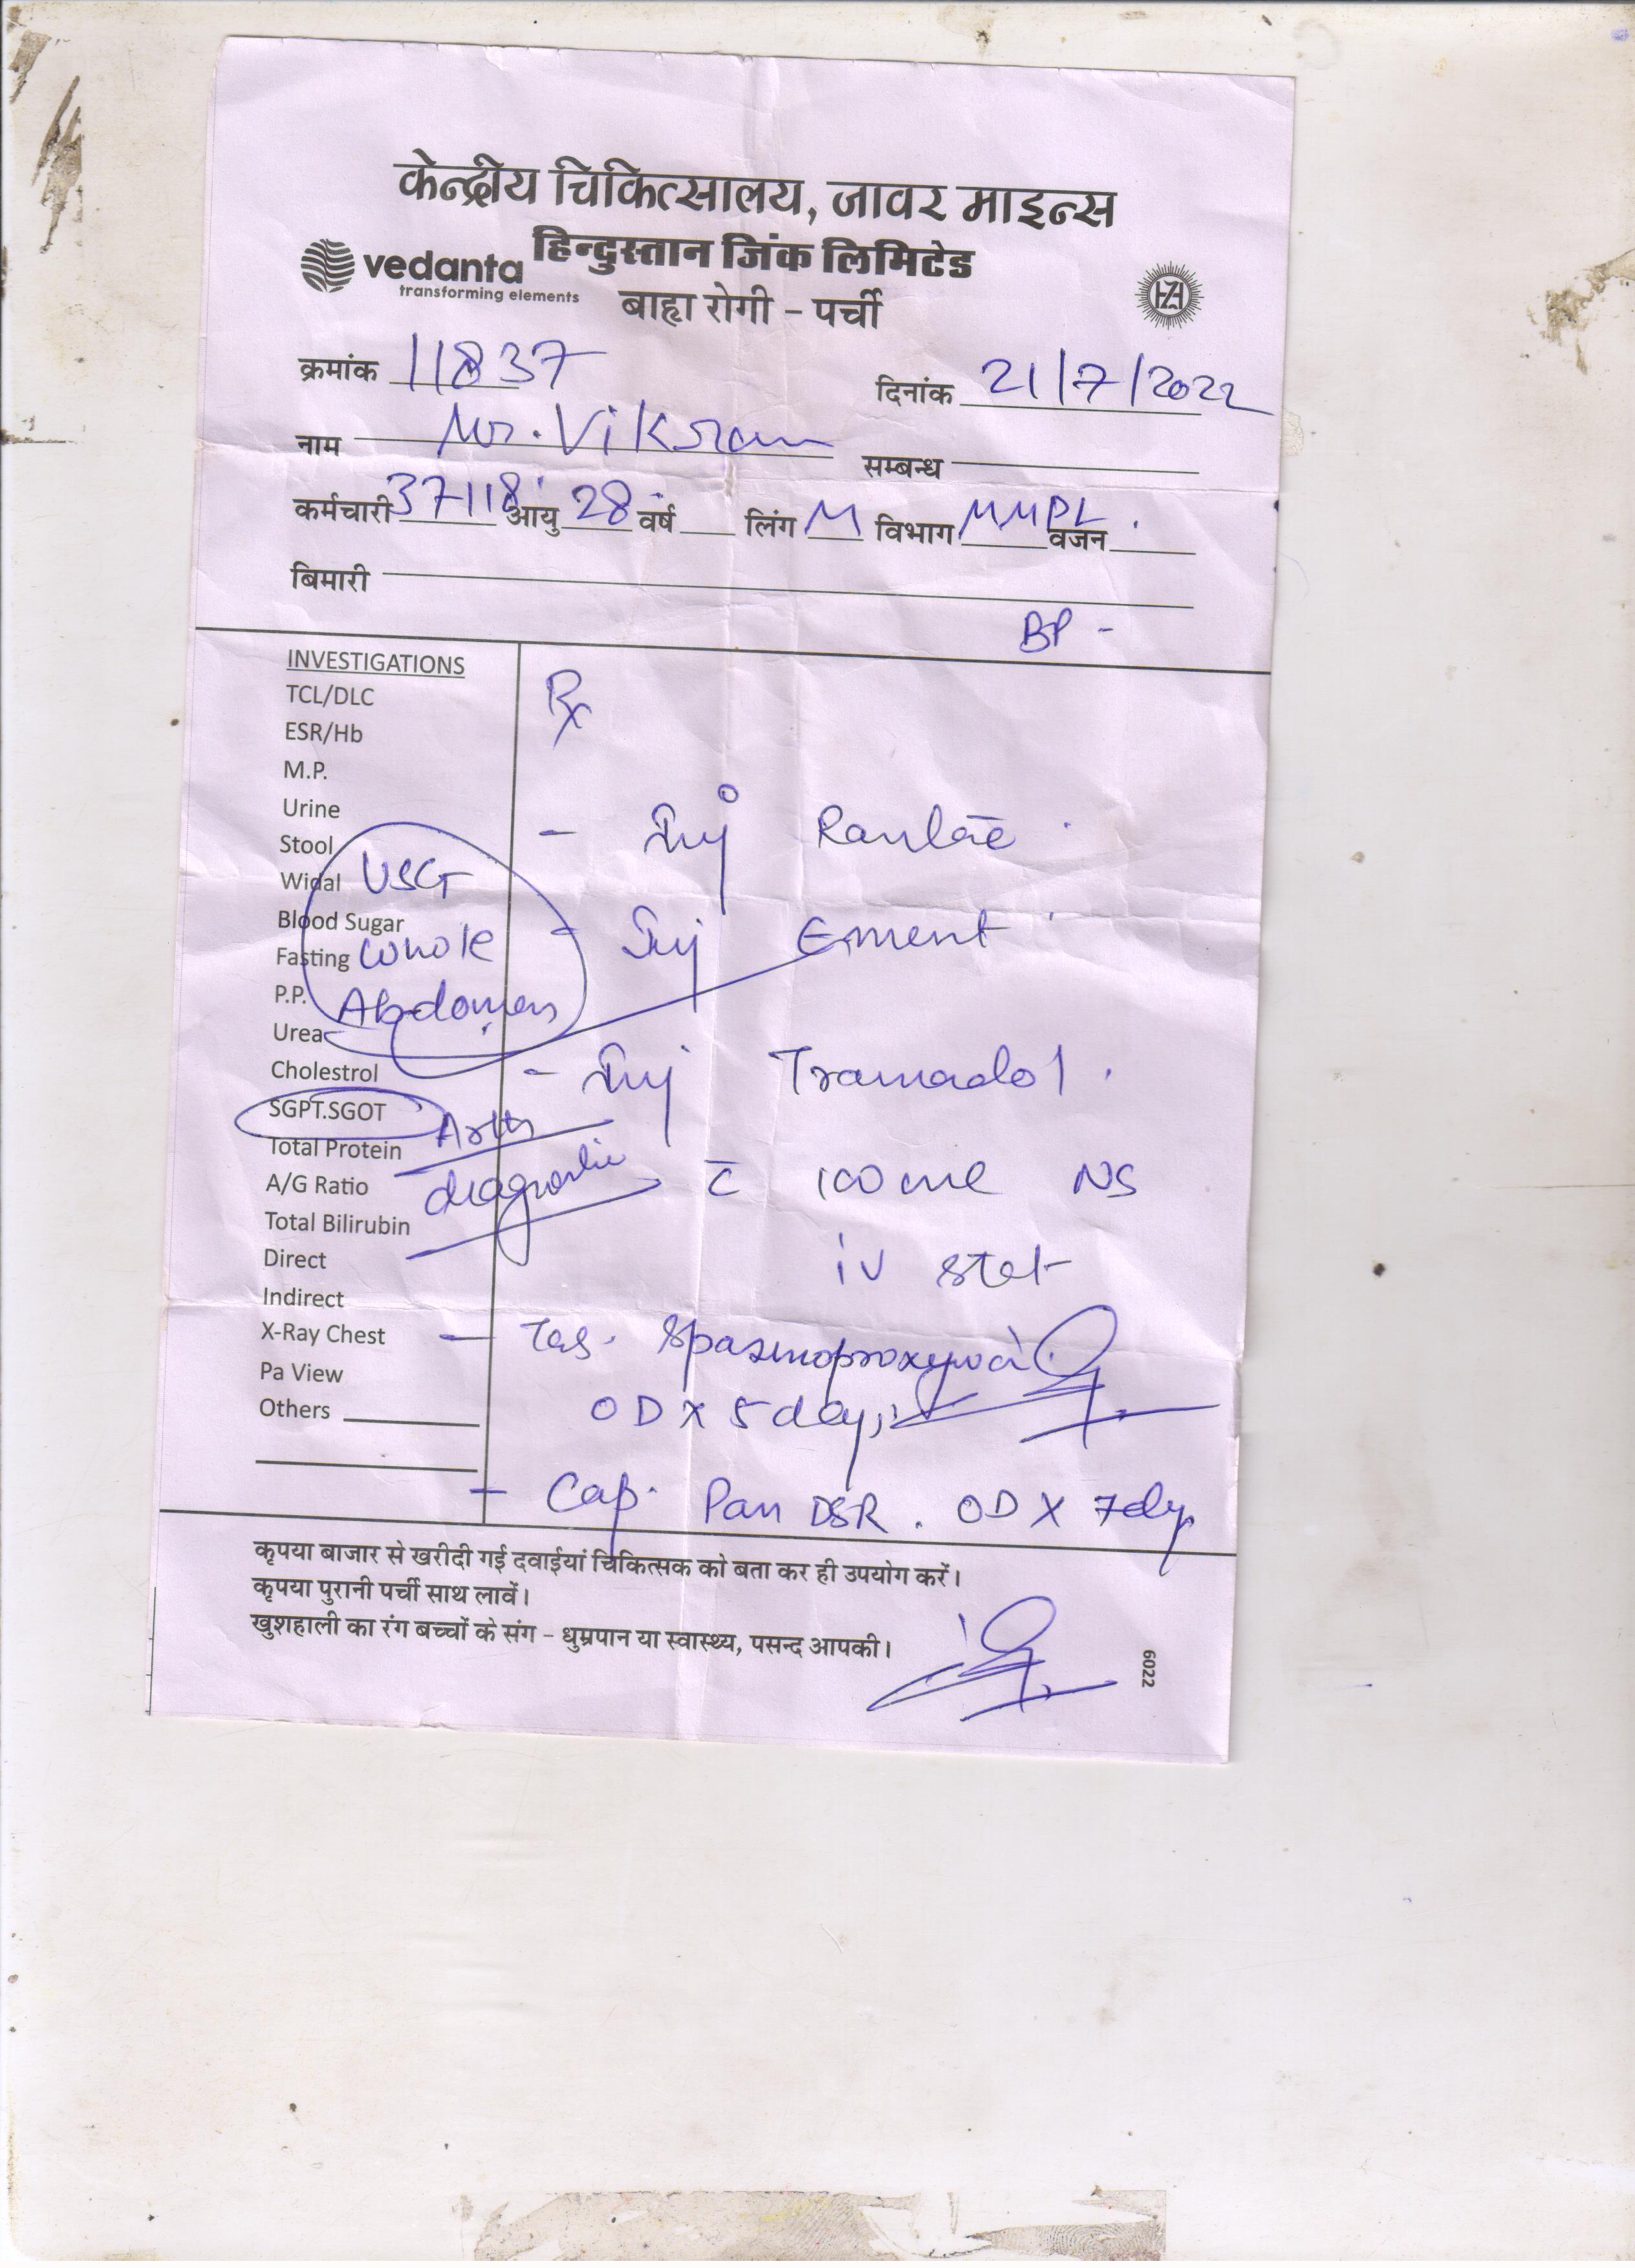 केन्द्रीय चिकित्सालय, जावर माइन्स
हिन्दुस्तान जिंक लिमिटेड
vedanta
transforming elements
बाह्य रोगी - पर्ची
क्रमांक 11837 दिनांक 21/7/2022
नाम Mr. Vikram सम्बन्ध
कर्मचारी 37118 आयु 28 वर्ष लिंग M विभाग MMPL वजन
बिमारी
BP -
INVESTIGATIONS
TCL/DLC
ESR/Hb
M.P.
Urine
Stool
Widal
Blood Sugar
Fasting
P.P.
Urea
Cholestrol
SGPT.SGOT
Total Protein
A/G Ratio
Total Bilirubin
Direct
Indirect
X-Ray Chest
Pa View
Others
USG
Whole
Abdomen
diagnostic
Rx
- Inj
- Inj Ement
- Inj Tramadol
c̄ 100 ml NS
iv stat
- Tab. Spasmoproxyvon
OD X 5 days
- Cap. Pan DSR. OD X 7 days
कृपया बाजार से खरीदी गई दवाईयां चिकित्सक को बता कर ही उपयोग करें।
कृपया पुरानी पर्ची साथ लावें।
खुशहाली का रंग बच्चों के संग - धुम्रपान या स्वास्थ्य, पसन्द आपकी।
6022